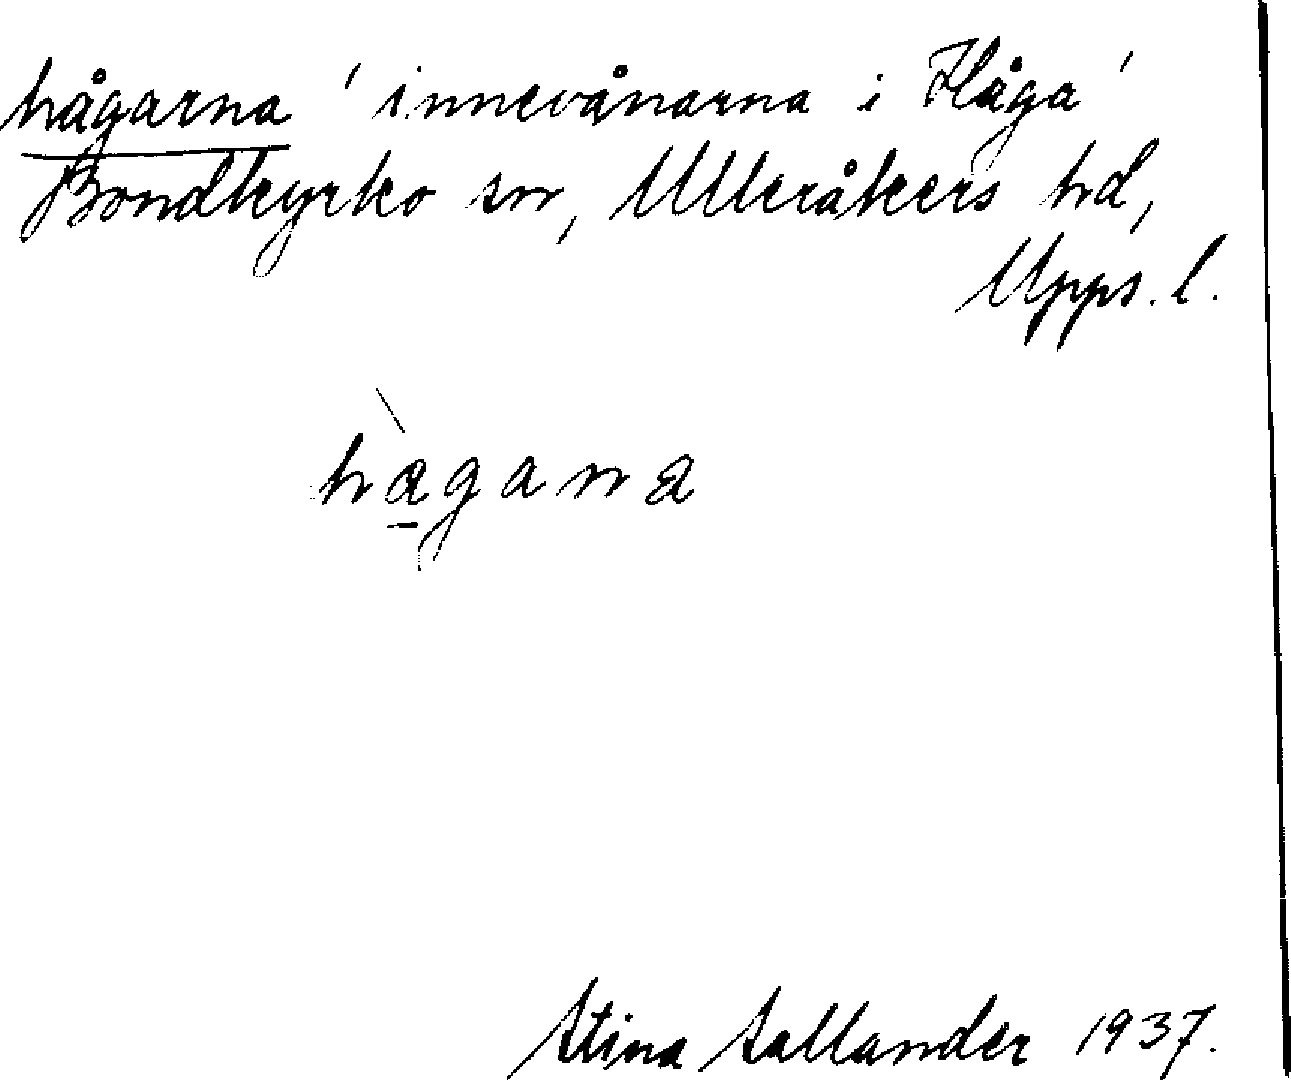 hågarna 'innevånarna i Håga'
Bondkyrko sn, Ulleråkers hd,
Upps. l.
hàgana
Stina Sallander 1937.